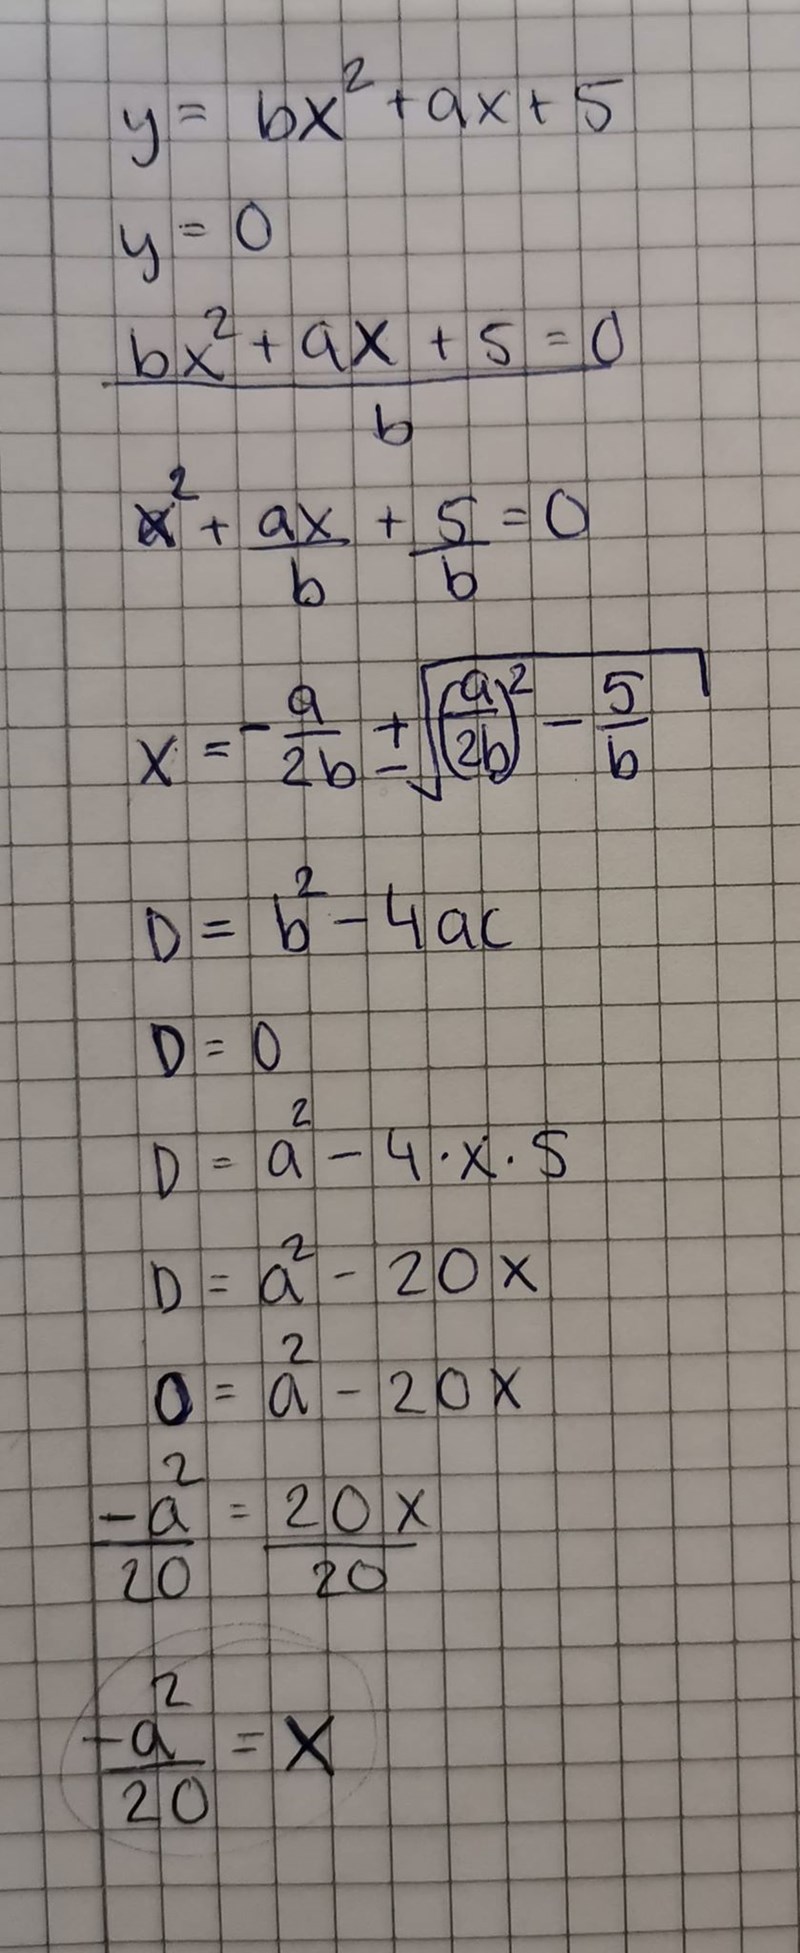 y = bx² + ax + 5
y = 0
bx² + ax + 5 = 0
b
x² + ax/b + 5/b = 0
x = -a/2b ± √((a/2b)² - 5/b)
D = b² - 4ac
D = 0
D = a² - 4·x·5
D = a² - 20x
0 = a² - 20x
-a²/20 = 20x/20
-a²/20 = x